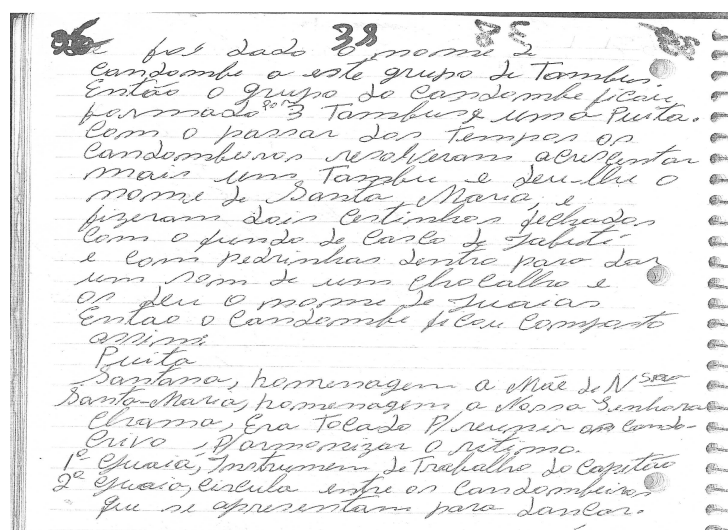 38
e foi dado o nome de
Candombe a este grupo de Tambus.
Então o grupo do Candombe ficou
formado por 3 Tambus e uma Puita.
Com o passar dos Tempos os
Candombeiros resolveram acrescentar
mais um Tambu e deu-lhe o
nome de Santa Maria, e
fizeram dois Cestinhos fechados
Com o fundo de Casco de Jabuti
e com pedrinhas dentro para dar
um som de um Chocalho e
os deu o nome de Guaias
Então o Candombe ficou Composto
assim:
Puita
Santana, homenagem a Mãe de N Sra
Santa-Maria, homenagem a Nossa Senhora
Chama, Era Tocado P/ reunir os Cando-
Crivo, P/ armonizar o ritimo.
1º Guaiá, Instrumen de Trabalho do Capitão
2º Guaia, circula entre os Candombeiros
que se apresentam para dançar.